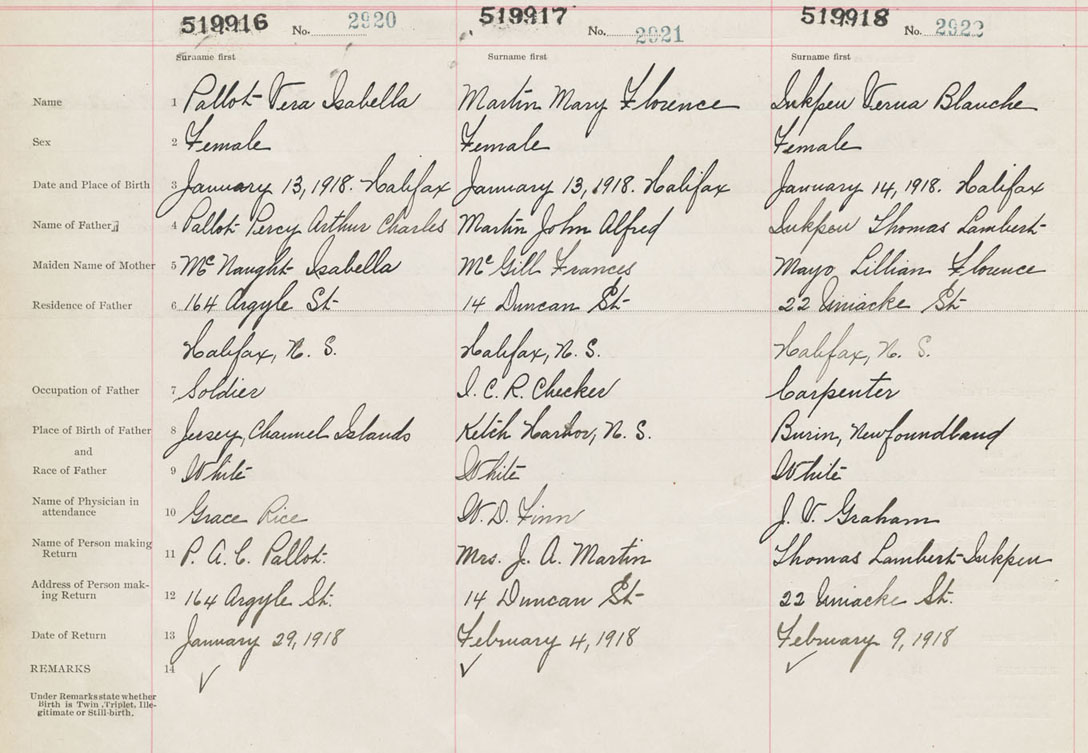 519916 No. 2920 519917 No. 2921 519918 No. 2922
Surname first Surname first Surname first
Name 1 Pallot Vera Isabella Martin Mary Florence Inkpen Verna Blanche
Sex 2 Female Female Female
Date and Place of Birth 3 January 13, 1918. Halifax January 13, 1918. Halifax January 14, 1918. Halifax
Name of Father 4 Pallot Percy Arthur Charles Martin John Alfred Inkpen Thomas Lambert
Maiden Name of Mother 5 McNaught Isabella McGill Frances Mayo Lillian Florence
Residence of Father 6 164 Argyle St 14 Duncan St 22 Uniacke St
Halifax, N. S. Halifax, N. S. Halifax, N. S.
Occupation of Father 7 Soldier I. C. R. Checker Carpenter
Place of Birth of Father 8 Jersey, Channel Islands Ketch Harbor, N. S. Burin, Newfoundland
and
Race of Father 9 White White White
Name of Physician in
attendance 10 Grace Rice W. D. Finn J. V. Graham
Name of Person making
Return 11 P. A. C. Pallot. Mrs. J. A. Martin Thomas Lambert Inkpen
Address of Person mak-
ing Return 12 164 Argyle St. 14 Duncan St 22 Uniacke St.
Date of Return 13 January 29, 1918 February 4, 1918 February 9, 1918
REMARKS 14
Under Remarks state whether
Birth is Twin, Triplet, Ille-
gitimate or Still-birth.